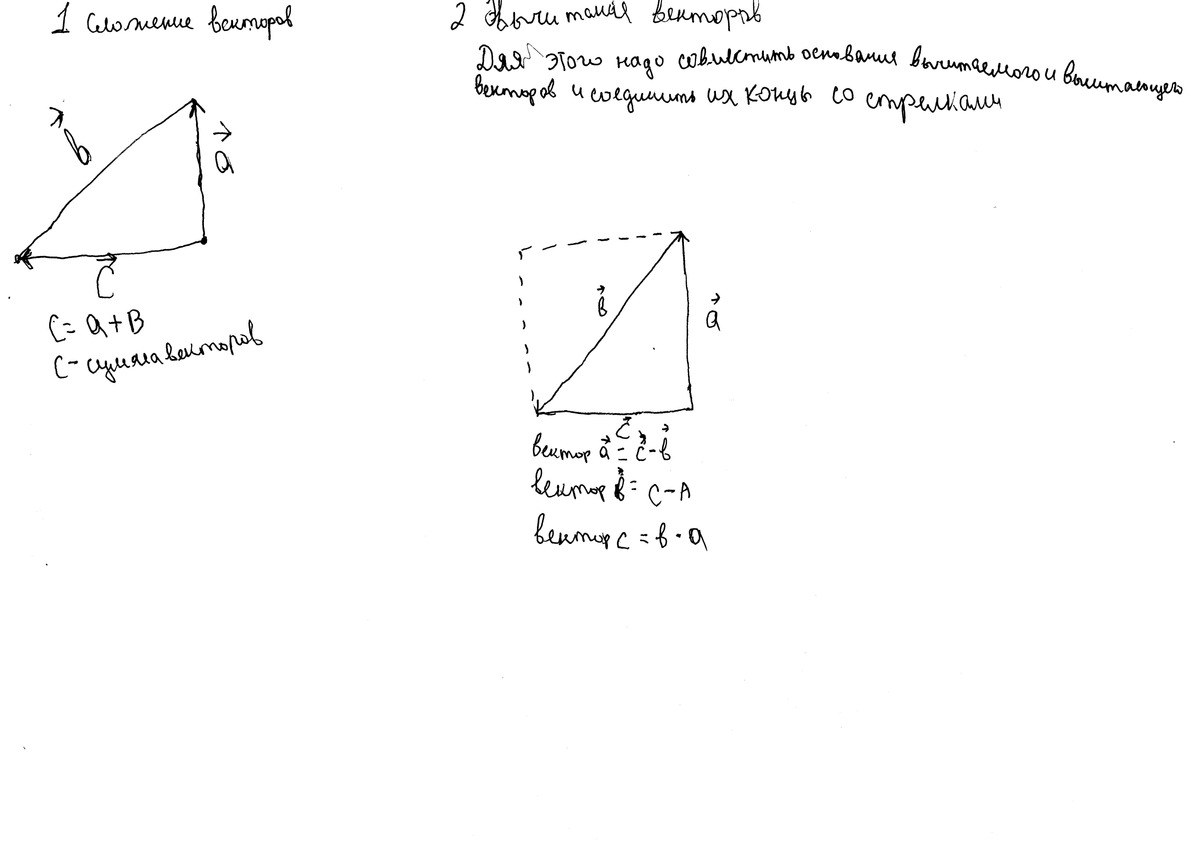 1 Сложение векторов
b
a
C
C = a + B
C - сумма векторов
2 Вычитание векторов
Для этого надо совместить основания вычитаемого и вычитающего
векторов и соединить их концы со стрелками
в
a
C
вектор a = c - в
вектор в = C - A
вектор c = в · a